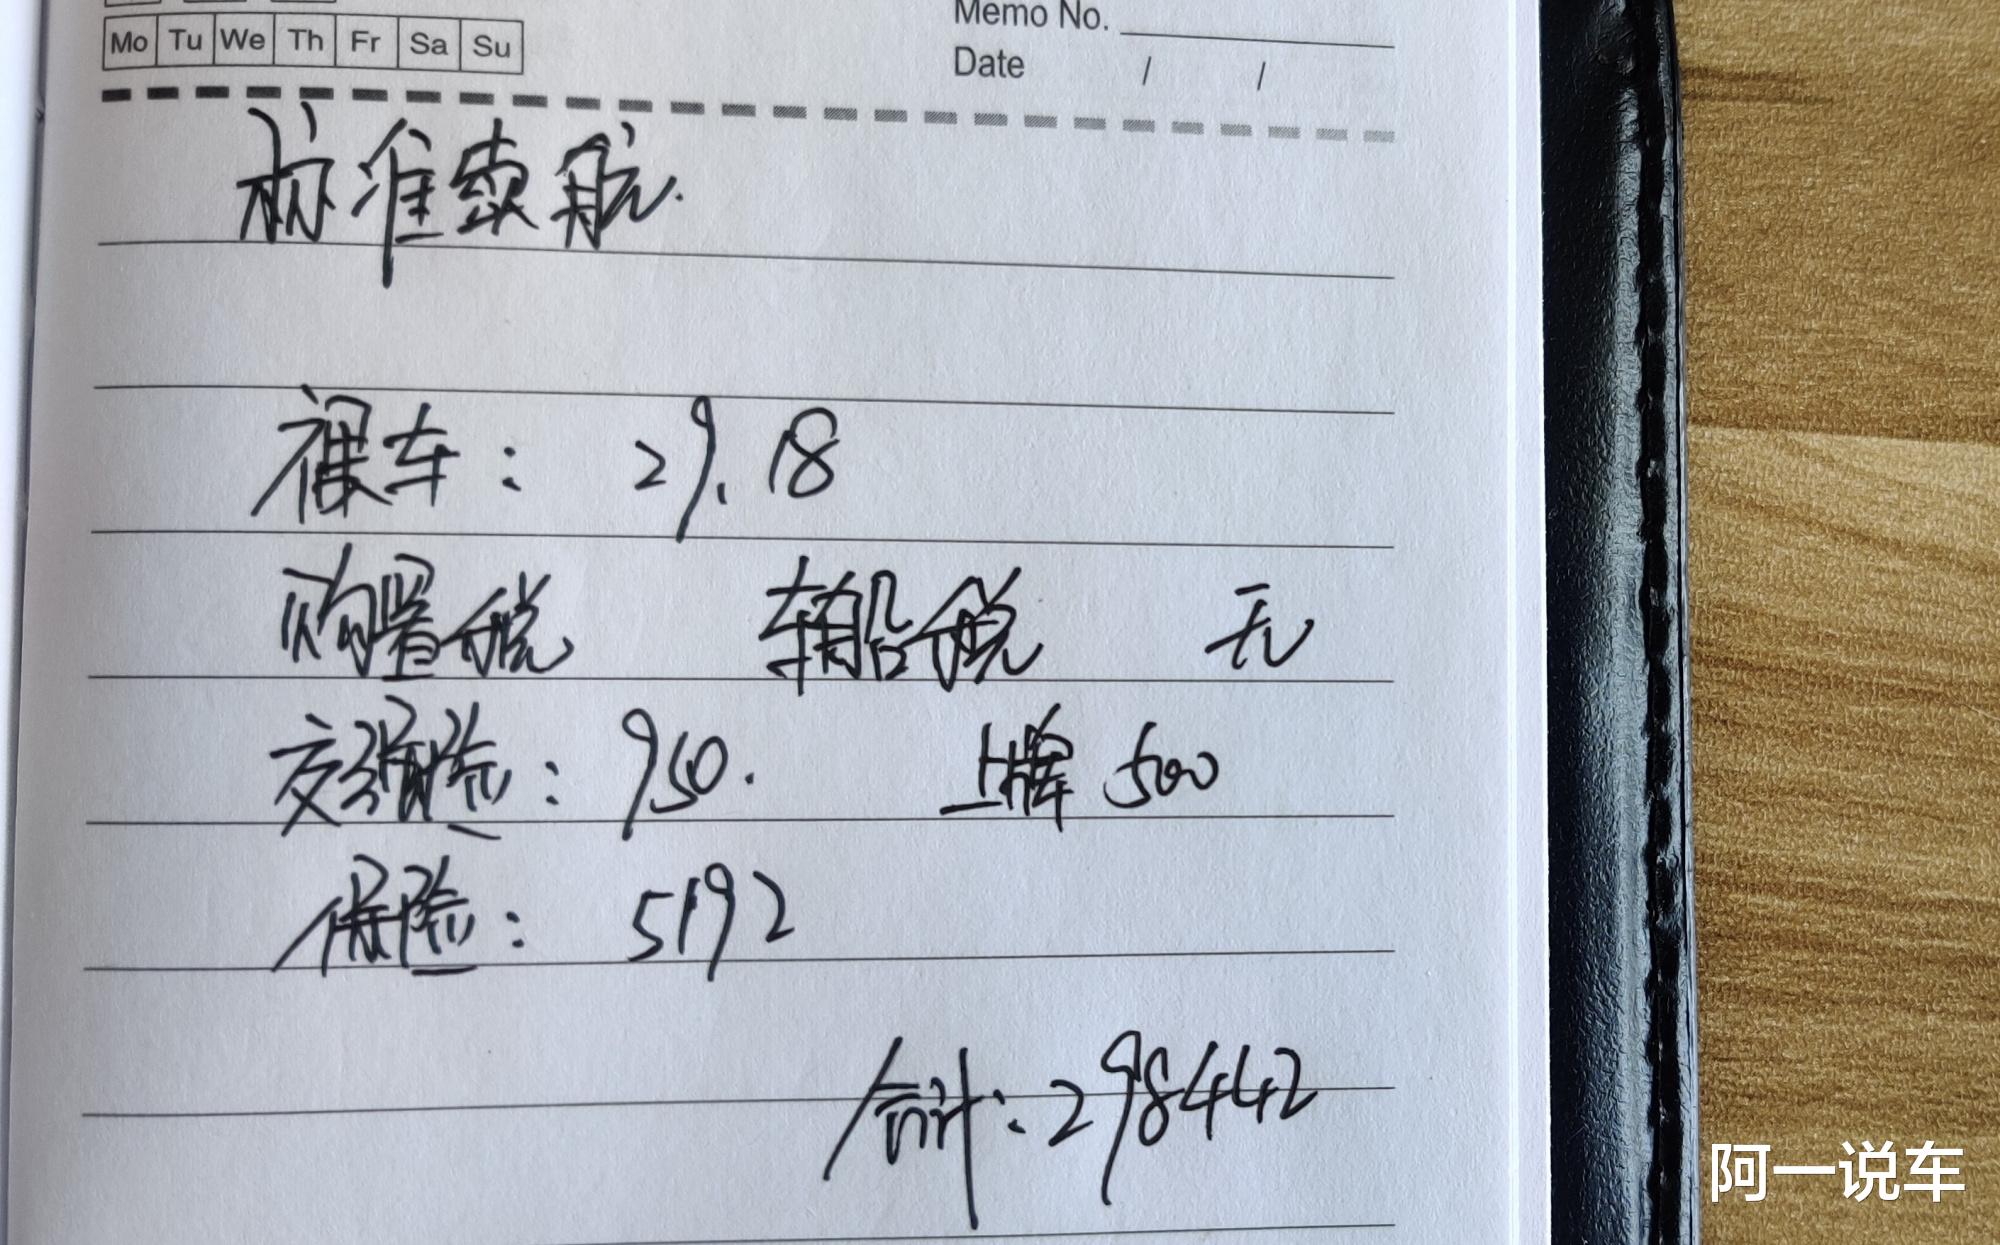 Memo No.
Mo Tu We Th Fr Sa Su
Date / /
标准续航.
裸车: 29.18
购置税 车船税 无
交强险: 950. 上牌 500
保险: 5192
合计: 298442
阿一说车